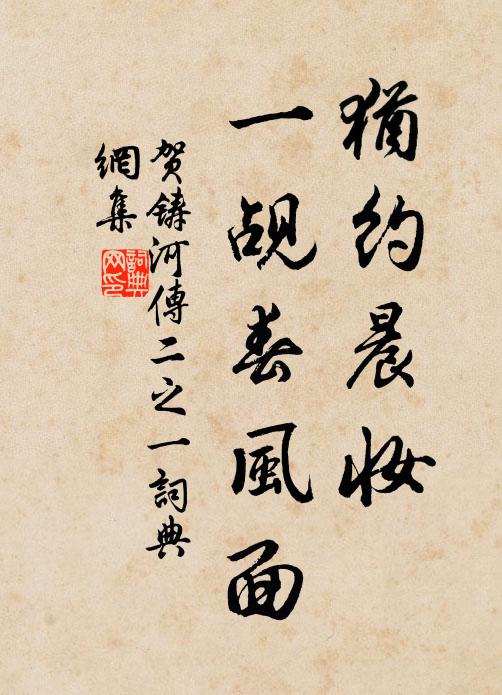 猶約晨妝
一覘春風面
賀鑄河傳二之一詞典
網集
詞典
网印